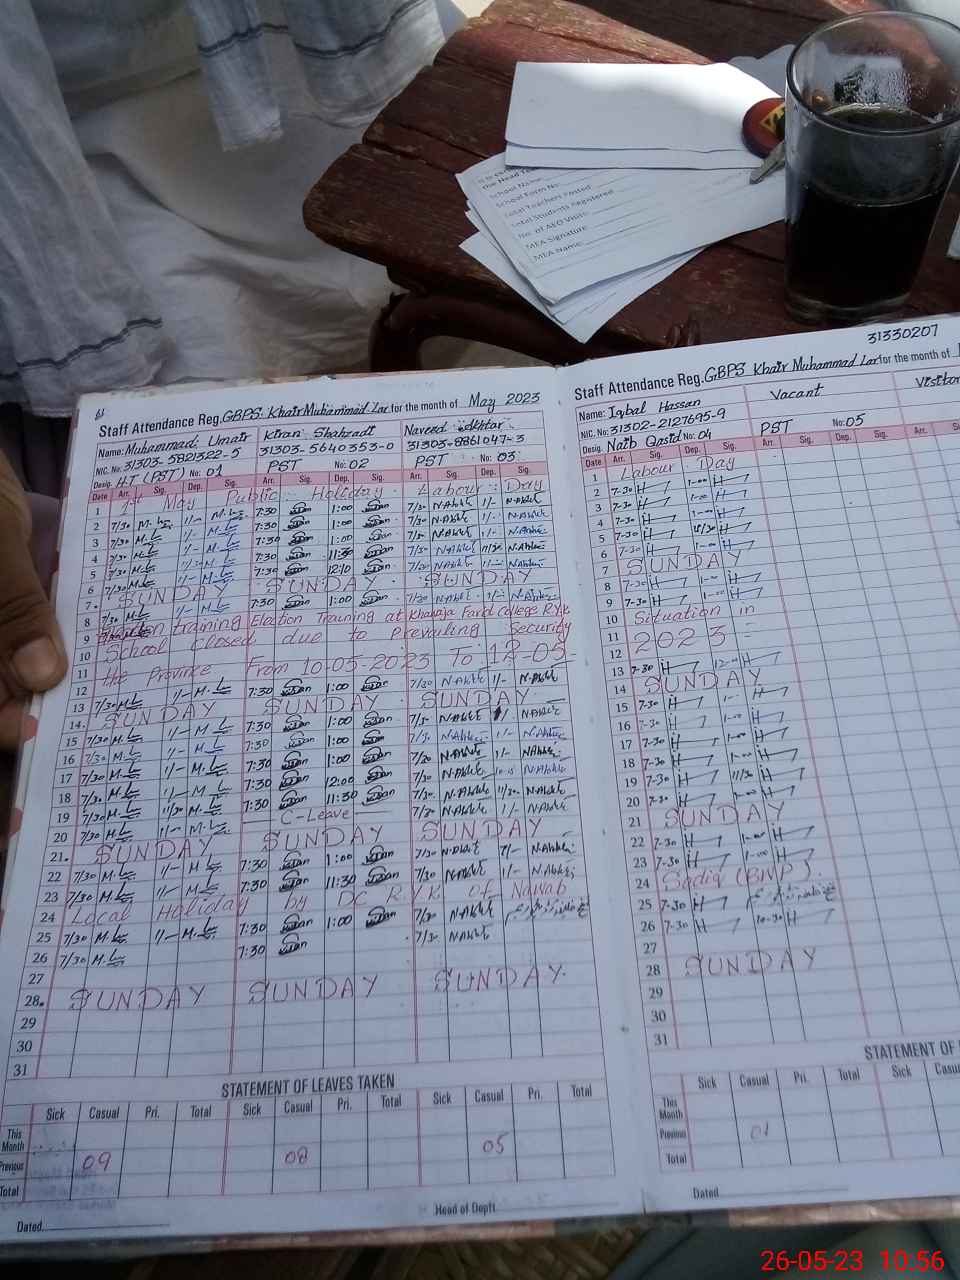 School Name:
School Form No
Total Teachers Posted
Total Students Registered
No. of AEO Visits:
MEA Signature
MEA Name:
31330207
Staff Attendance Reg. GBPS Khair Muhammad Lar for the month of May 2023
Name: Muhammad Umair Kiran Shahzadi Naveed Akhtar
NIC. No: 31303-5821322-5 31303-5640353-0 31303-8861047-3
Desig. H.T (PST) No: 01 PST No: 02 PST No: 03
Date Arr. Sig. Dep. Sig. Arr. Sig. Dep. Sig. Arr. Sig. Dep. Sig.
1 1st May Public Holiday Labour Day
2 7/30 1/- 7:30 1:00 7/30 N.Akhtr 1/- N.Akhtr
3 7/30 1/- 7:30 1:00 7/30 N.Akhtr 1/- N.Akhtr
4 7/30 1/- 7:30 1:00 7/30 N.Akhtr 1/- N.Akhtr
5 7/30 7:30 11:30 7/30 N.Akhtr 11/30 N.Akhtr
6 7/30 1/- 7:30 7/30 N.Akhtr 1/- N.Akhtr
7. SUNDAY SUNDAY SUNDAY
8 7/30 1/- 7:30 1:00 7/30 N.Akhtr 1/- N.Akhtr
9 Election training Elation Training at Khawaja Farid College R.Y.K
10 School closed due to Prevailing Security
11 the Province From 10-05-2023 To 12-05
12
13 7/30 1/- 7:30 1:00 7/30 N.Akhtr 1/- N.Akhtr
14. SUNDAY SUNDAY SUNDAY
15 7/30 1/- 7:30 1:00 7/30 N.Akhtr 1/- N.Akhtr
16 7/30 1/- 7:30 1:00 7/30 N.Akhtr 1/- N.Akhtr
17 7/30 1/- 7:30 1:00 7/30 N.Akhtr 1/- N.Akhtr
18 7/30 1/- 7:30 12:00 7/30 N.Akhtr N.Akhtr
19 7/30 11/30 7:30 11:30 7/30 N.Akhtr 11/30 N.Akhtr
20 7/30 C-Leave 7/30 N.Akhtr 1/- N.Akhtr
21. SUNDAY SUNDAY SUNDAY
22 7/30 1/- 7:30 1:00 7/30 N.Akhtr N.Akhtr
23 7/30 1/- 7:30 11:30 7/30 N.Akhtr 1/- N.Akhtr
24 Local Holiday by DC R.Y.K of Nawab
25 7/30 1/- 7:30 1:00 7/30 N.Akhtr
26 7/30 7:30 7/30 N.Akhtr
27
28. SUNDAY SUNDAY SUNDAY
29
30
31
STATEMENT OF LEAVES TAKEN
Sick Casual Pri. Total Sick Casual Pri. Total Sick Casual Pri. Total
This Month
Previous 09 08 05
Total
Dated Head of Deptt
Staff Attendance Reg. GBPS Khair Muhammad Lar for the month of
Name: Iqbal Hassan Vacant Visitor
NIC. No: 31302-2127695-9
Desig. Naib Qasid No: 04 PST No: 05
Date Arr. Sig. Dep. Sig. Arr. Sig. Dep. Sig. Arr.
1 Labour Day
2 7-30 H 1-00 H
3 7-30 H 1-00 H
4 7-30 H 1-00 H
5 7-30 H H
6 7-30 H 1-00 H
7 SUNDAY
8 7-30 H 1-00 H
9 7-30 H 1-00 H
10 Situation in
11 2023
12
13 7-30 H 12-00 H
14 SUNDAY
15 7-30 H H
16 7-30 H 1-00 H
17 7-30 H 1-00 H
18 7-30 H 1-00 H
19 7-30 H 11/30 H
20 7-30 H 1-00 H
21 SUNDAY
22 7-30 H 1-00 H
23 7-30 H 1-00 H
24 Sadiq (BWP).
25 7-30 H
26 7-30 H 10-30 H
27
28 SUNDAY
29
30
31
STATEMENT OF
Sick Casual Pri. Total Sick
This Month
Previous 01
Total
Dated
26-05-23 10:56